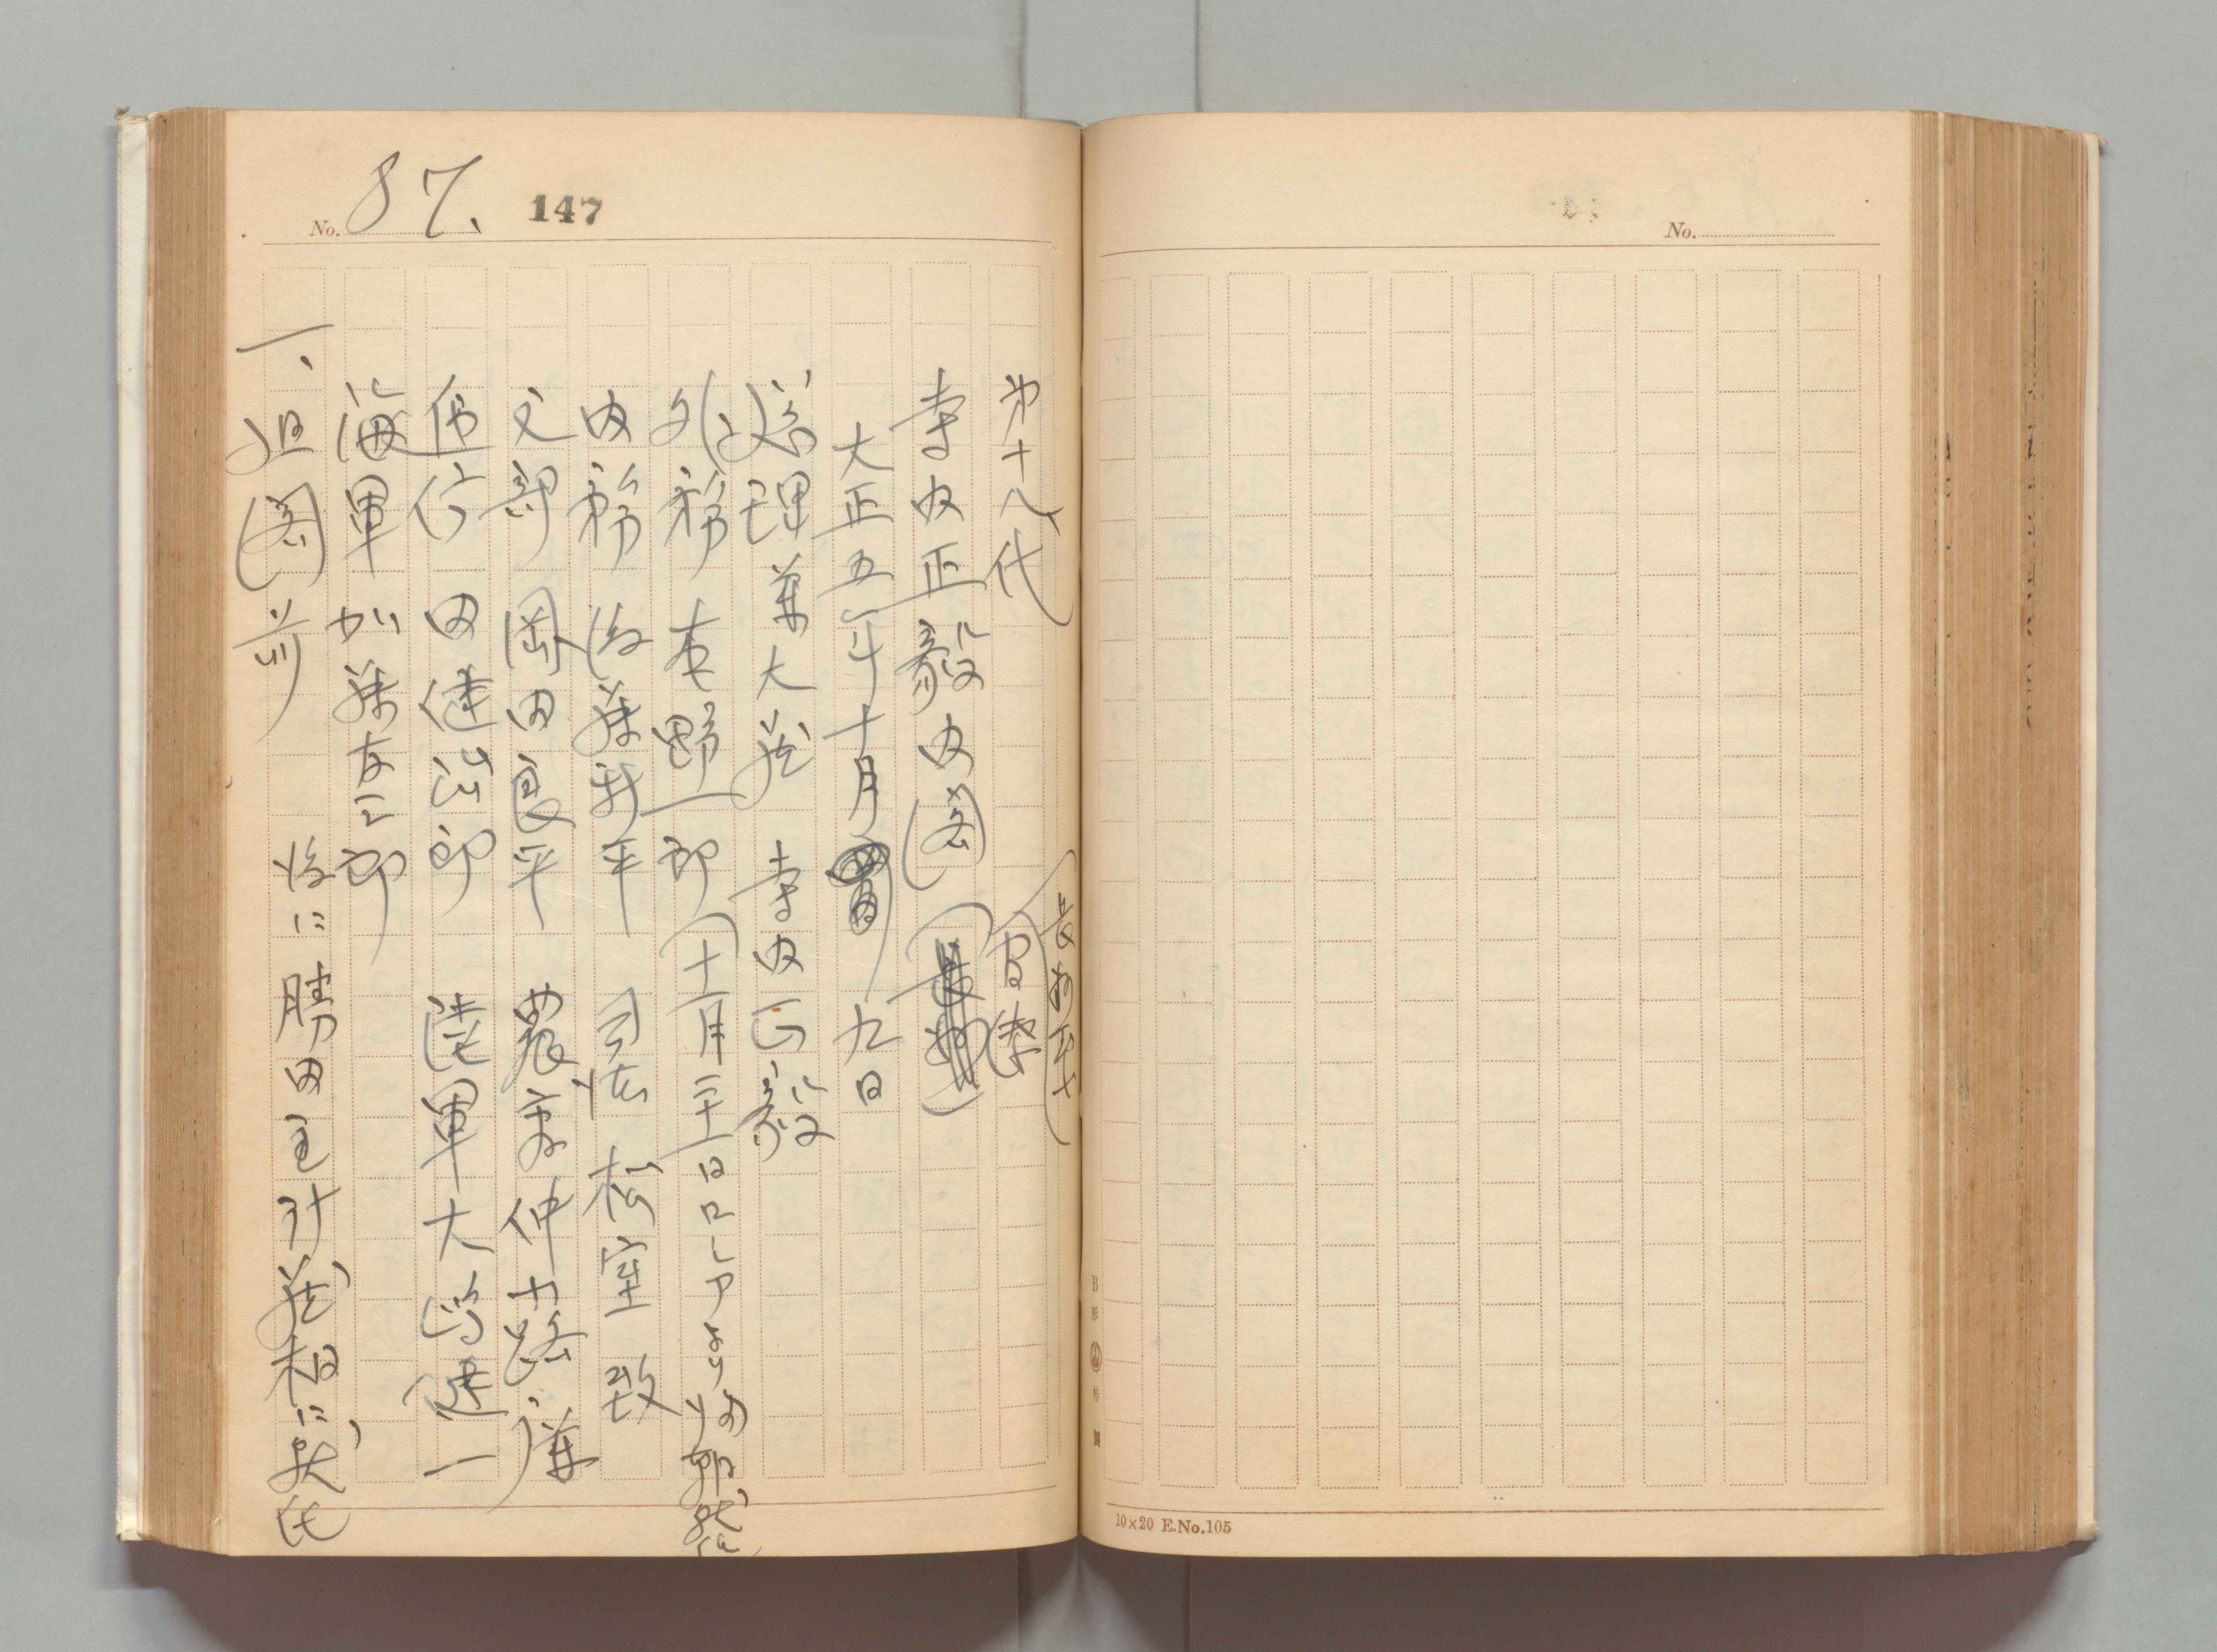 No.
10×20 E.No.105
No. 87. 147
(長州軍
才十八代 官僚)
寺内正毅内閣
大正五年十月九日
総理兼大蔵 寺内正毅
外務 本野一郎(十一月二十一日ロシアより
内務 後藤新平 司法 松室致
文部 岡田良平 農商 仲小路廉
逓信 田健治郎 陸軍 大島健一
海軍 加藤友三郎
一、組閣前 後に勝田主計蔵相に就任